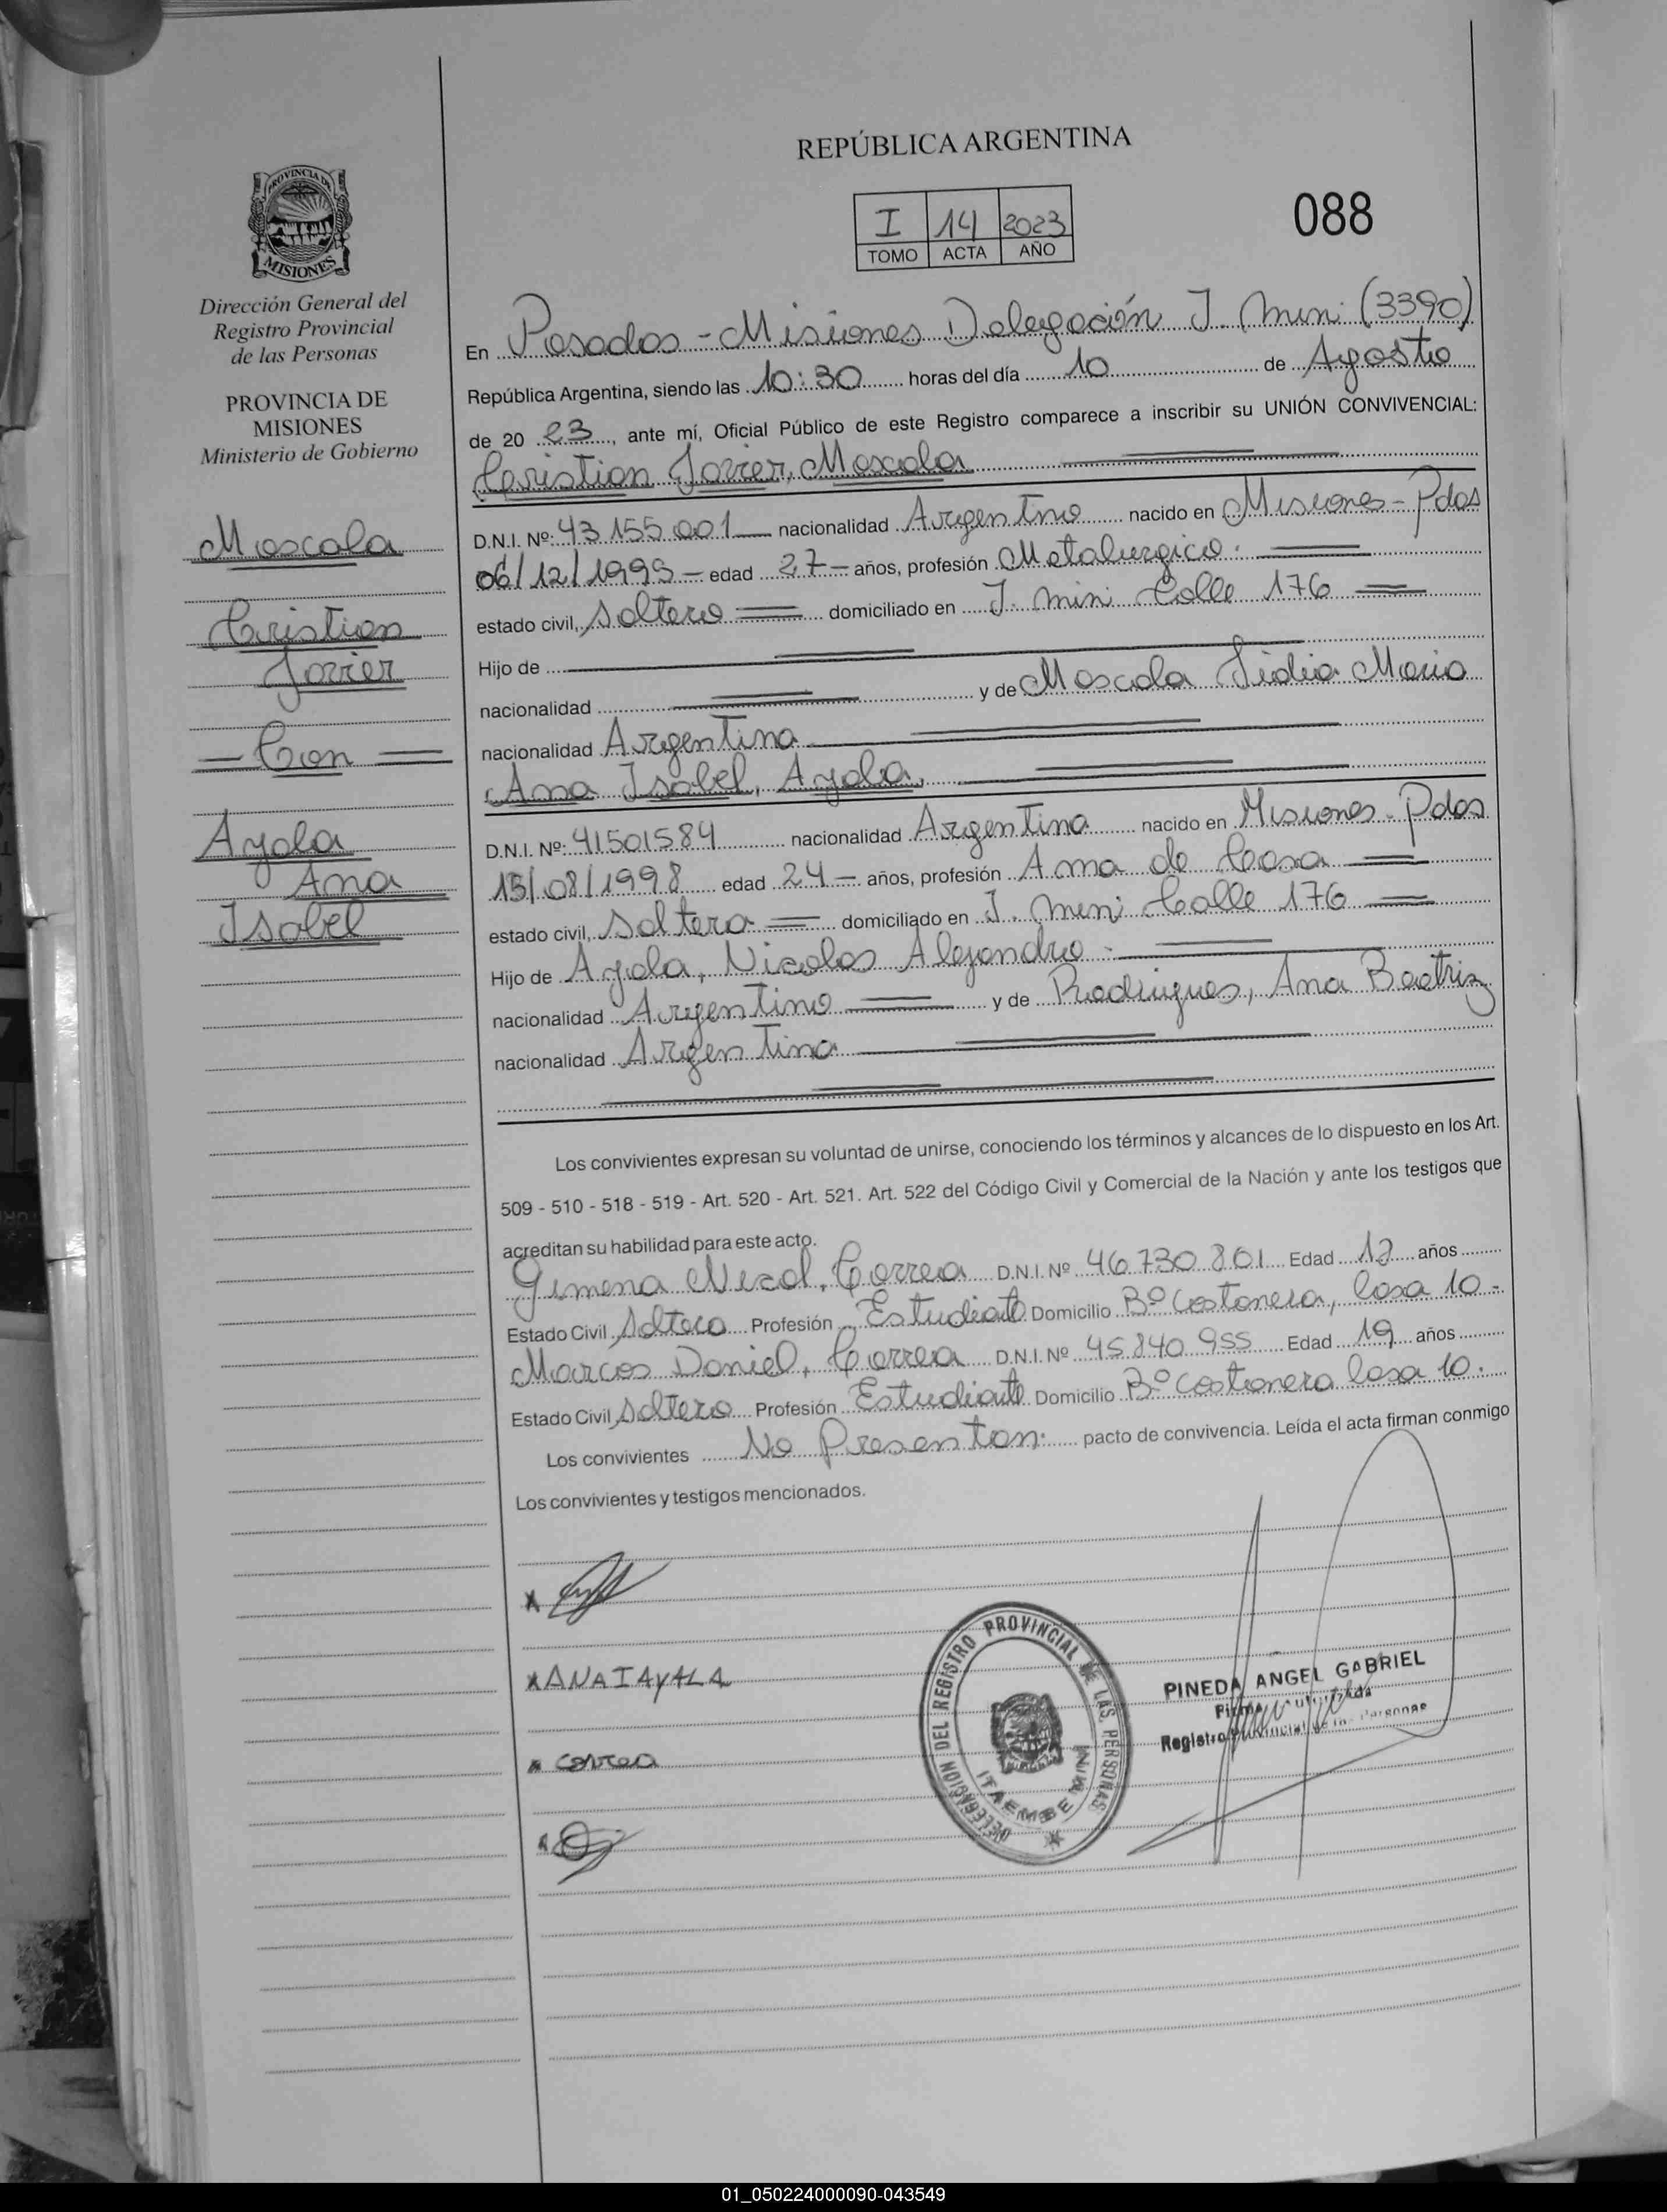 REPÚBLICA ARGENTINA
I 14 2023
TOMO ACTA AÑO
088
PROVINCIA DE
MISIONES
Dirección General del
Registro Provincial
de las Personas
PROVINCIA DE
MISIONES
Ministerio de Gobierno
Moscala
Cristian
Javier
- Con =
Ayala
Ana
Isabel
En Posadas - Misiones Delegación I. Mini (3390)
República Argentina, siendo las 10:30 horas del día 10 de Agosto
de 20 23, ante mí, Oficial Público de este Registro comparece a inscribir su UNIÓN CONVIVENCIAL:
Cristian Javier, Moscala
D.N.I. Nº: 43 155 001 nacionalidad Argentino nacido en Misiones - Pdas
06/12/1995 - edad 27 - años, profesión Metalurgico.
estado civil, Soltero domiciliado en I. mini Calle 176
Hijo de
nacionalidad y de Moscala Lidia Maria
nacionalidad Argentina
Ana Isabel, Ayala,
D.N.I. Nº: 41501584 nacionalidad Argentina nacido en Misiones - Pdas
15/08/1998 edad 24 - años, profesión Ama de Casa
estado civil, Soltera domiciliado en I. mini Calle 176
Hijo de Ayala, Nicolas Alejandro -
nacionalidad Argentino y de Rodrigues, Ana Beatriz
nacionalidad Argentina
Los convivientes expresan su voluntad de unirse, conociendo los términos y alcances de lo dispuesto en los Art.
509 - 510 - 518 - 519 - Art. 520 - Art. 521. Art. 522 del Código Civil y Comercial de la Nación y ante los testigos que
acreditan su habilidad para este acto.
Gimena Nicol, Correa D.N.I. Nº 46 730 801 Edad años
Estado Civil Soltera Profesión Estudiante Domicilio Bº Costanera, Casa 10 -
Marcos Daniel, Correa D.N.I. Nº 45 840 955 Edad 19 años
Estado Civil Soltero Profesión Estudiante Domicilio Bº Costanera Casa 10.
Los convivientes No Presentan. pacto de convivencia. Leída el acta firman conmigo
Los convivientes y testigos mencionados.
x
x ANA I AYALA
x correa
x
DELEGACION DEL REGISTRO PROVINCIAL DE LAS PERSONAS
ITAEMBE MINI
PINEDA ANGEL GABRIEL
Firma Autorizada
Registro Provincial de las Personas
01_050224000090-043549